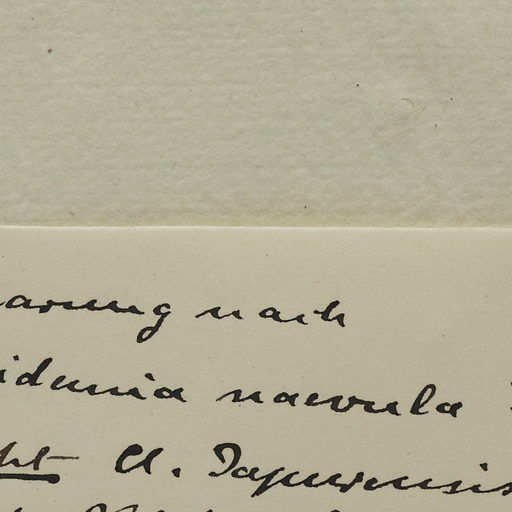 arung nach
idunia naevula
ht A. Japurensis